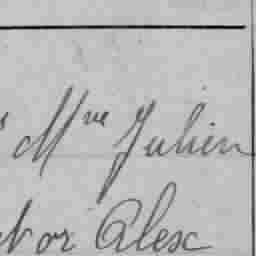 Mve Julien
or Alex